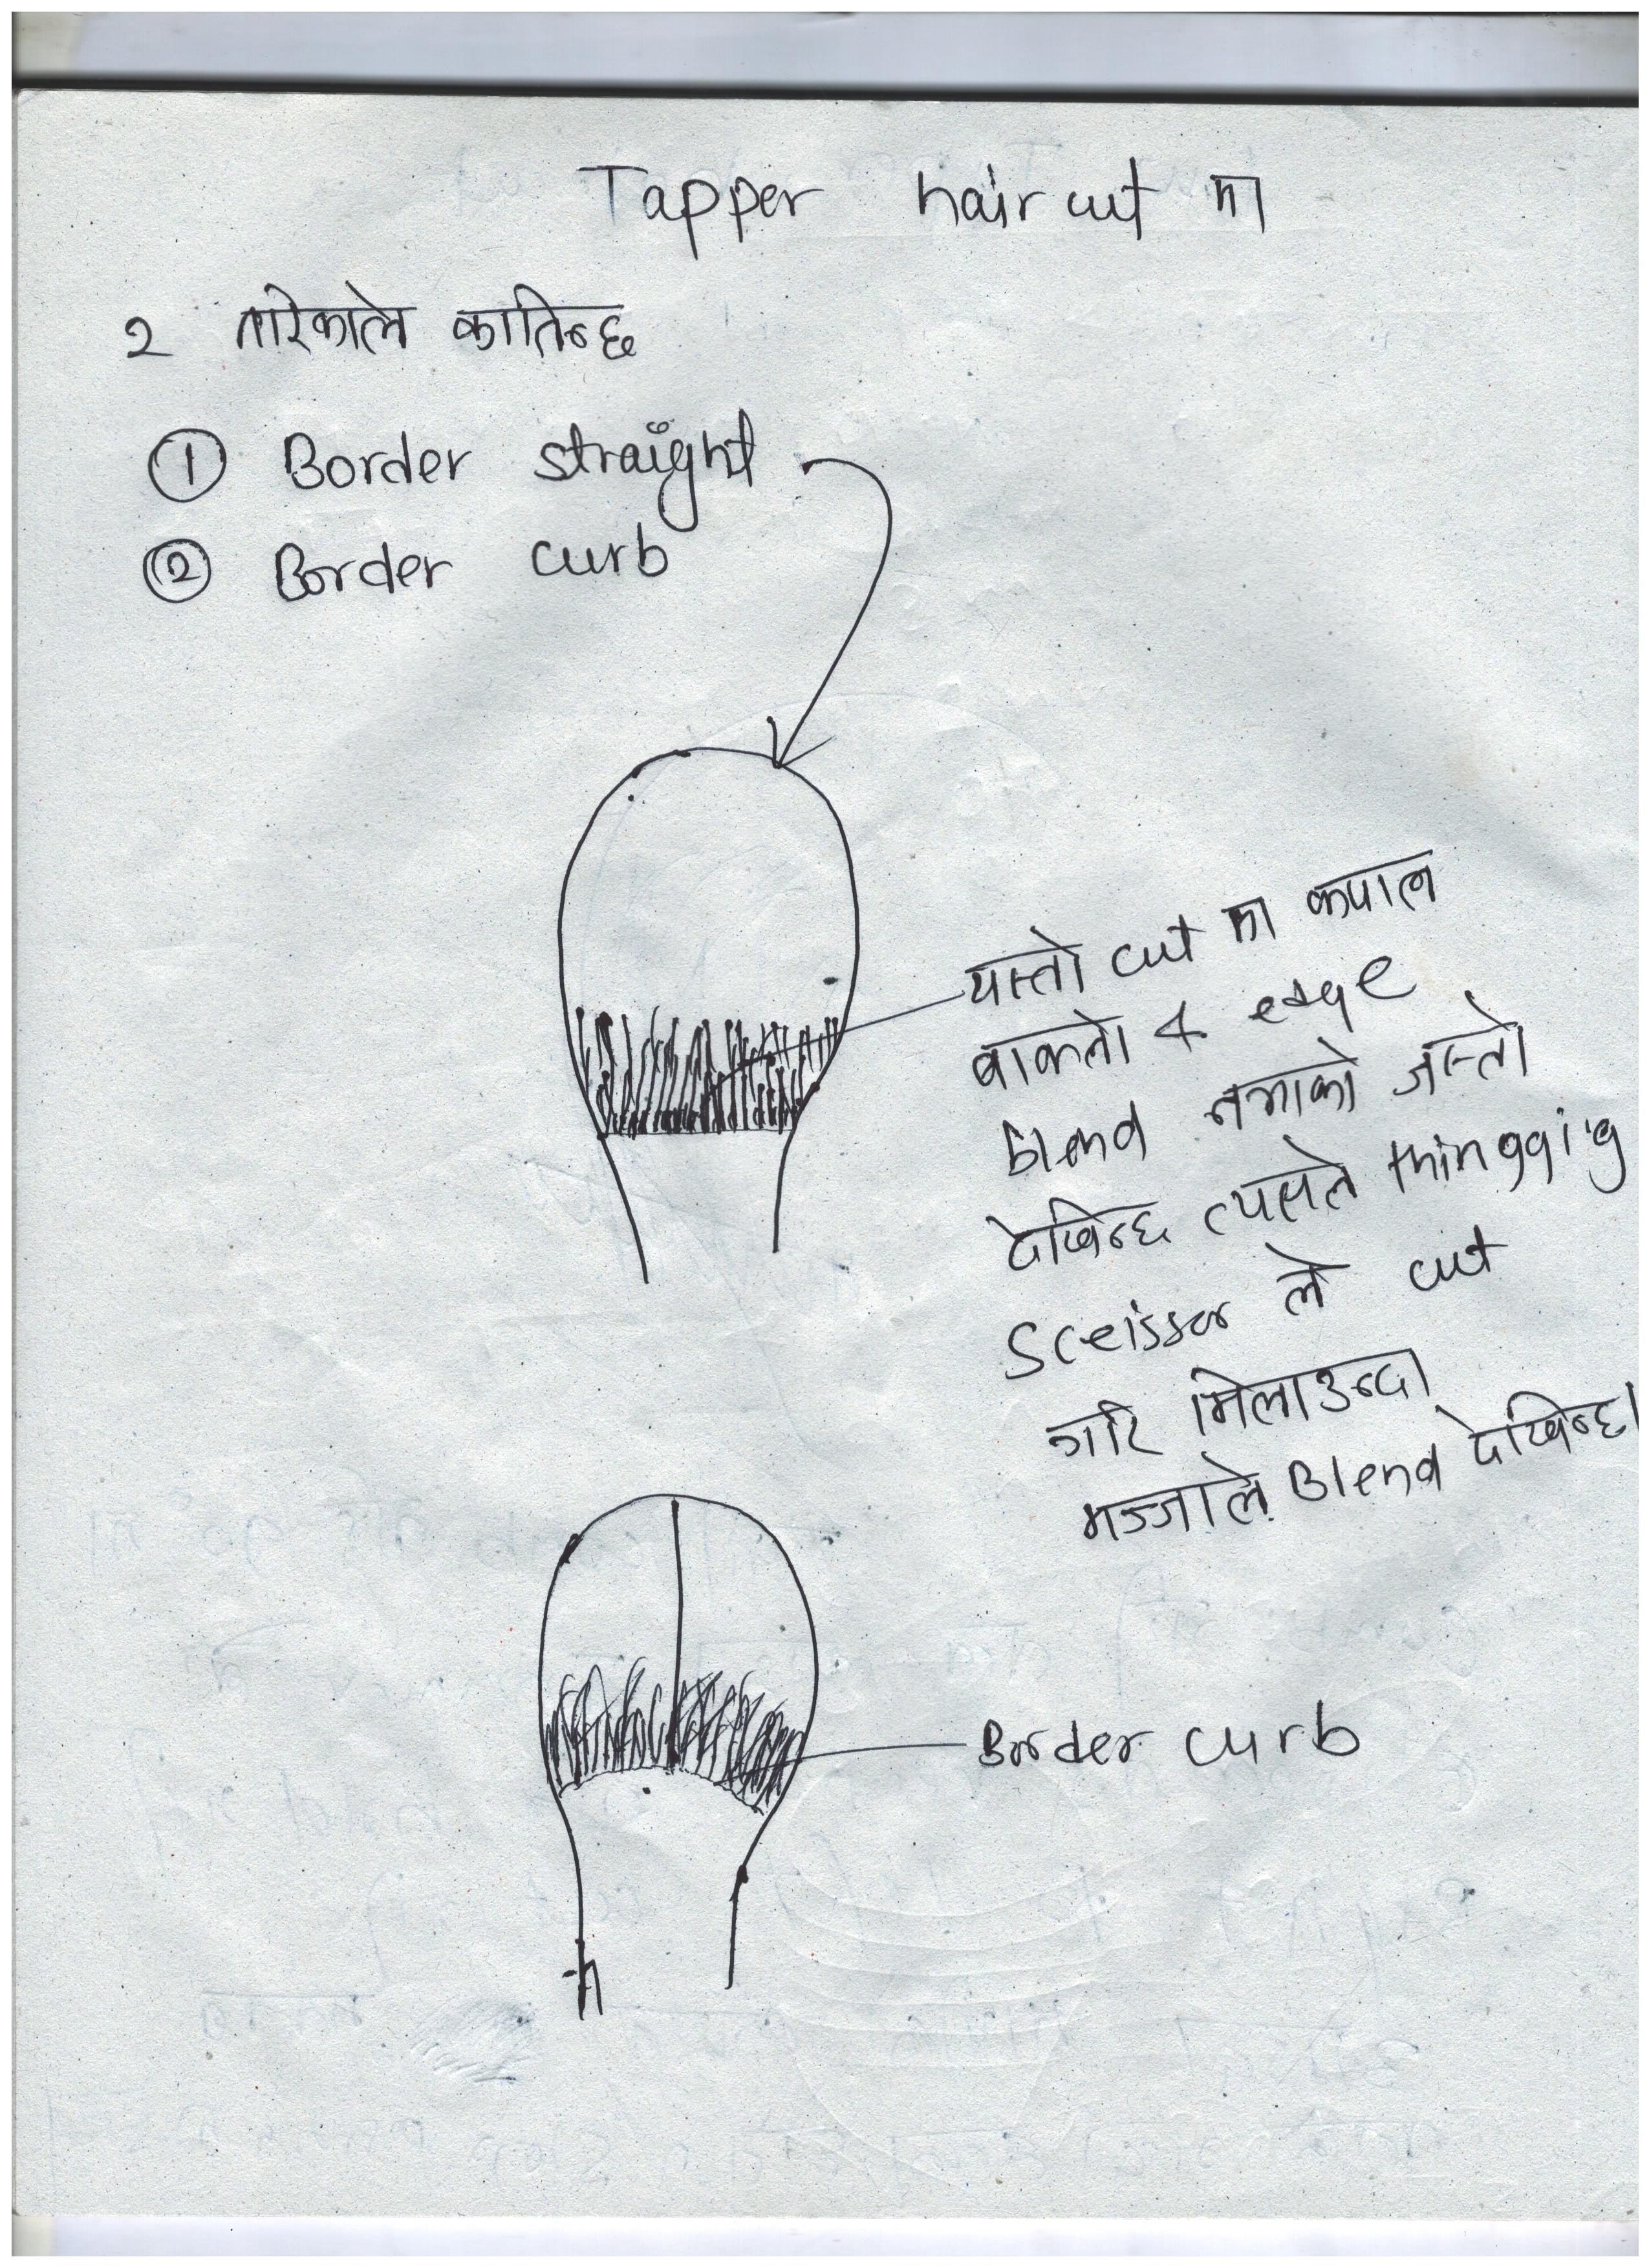 Tapper haircut मा
२ तरिकाले कातिन्छ
① Border straight
② Border curb
यस्तो cut मा कपाल
बाक्लो & edge
Blend नभाको जस्तो
देखिन्छ त्यसले thingging
Sceissor ले cut
गरि मिलाउन्दा
मज्जाले Blend देखिन्छ।
Border curb